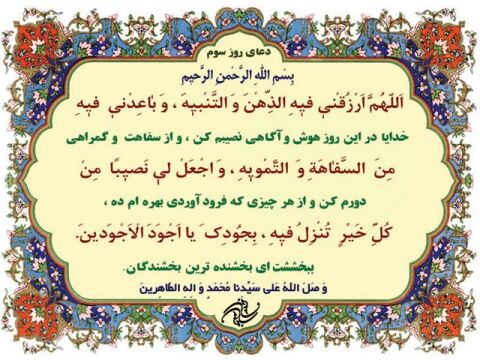 دعای روز سوم
بِسْمِ اللهِ الرَّحْمنِ الرَّحیمِ
اَللّهُمَّ ارْزُقْنی فیهِ الذِّهْنَ وَ التَّنْبیهَ ، وَ بَاعِدْنی فیهِ
خدایا در این روز هوش و آگاهی نصیبم کن ، و از سفاهت و گمراهی
مِنَ السَّفاهَةِ وَ التَّمْویهِ ، وَ اجْعَلْ لی نَصیبًا مِنْ
دورم کن و از هر چیزی که فرود آوردی بهره ام ده ،
کُلِّ خَیْرٍ تُنْزِلُ فیهِ ، بِجُودِکَ یا اَجْوَدَ الْاَجْوَدینَ.
ببخششت ای بخشنده ترین بخشندگان.
وَ صَلَ اللهُ عَلی سَیِّدِنا مُحَمَدٍ وَ الِهِ الطّاهِرینَ